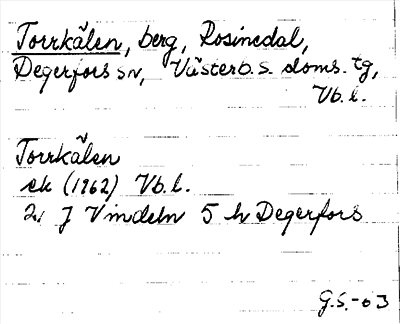 Torrkälen, berg, Rosinedal,
Degerfors sn, Västerb.s. doms. tg,
Vb. l.
Torrkälen
ek (1962) Vb. l.
21 J Vindeln 5 h Degerfors
G.S.-63